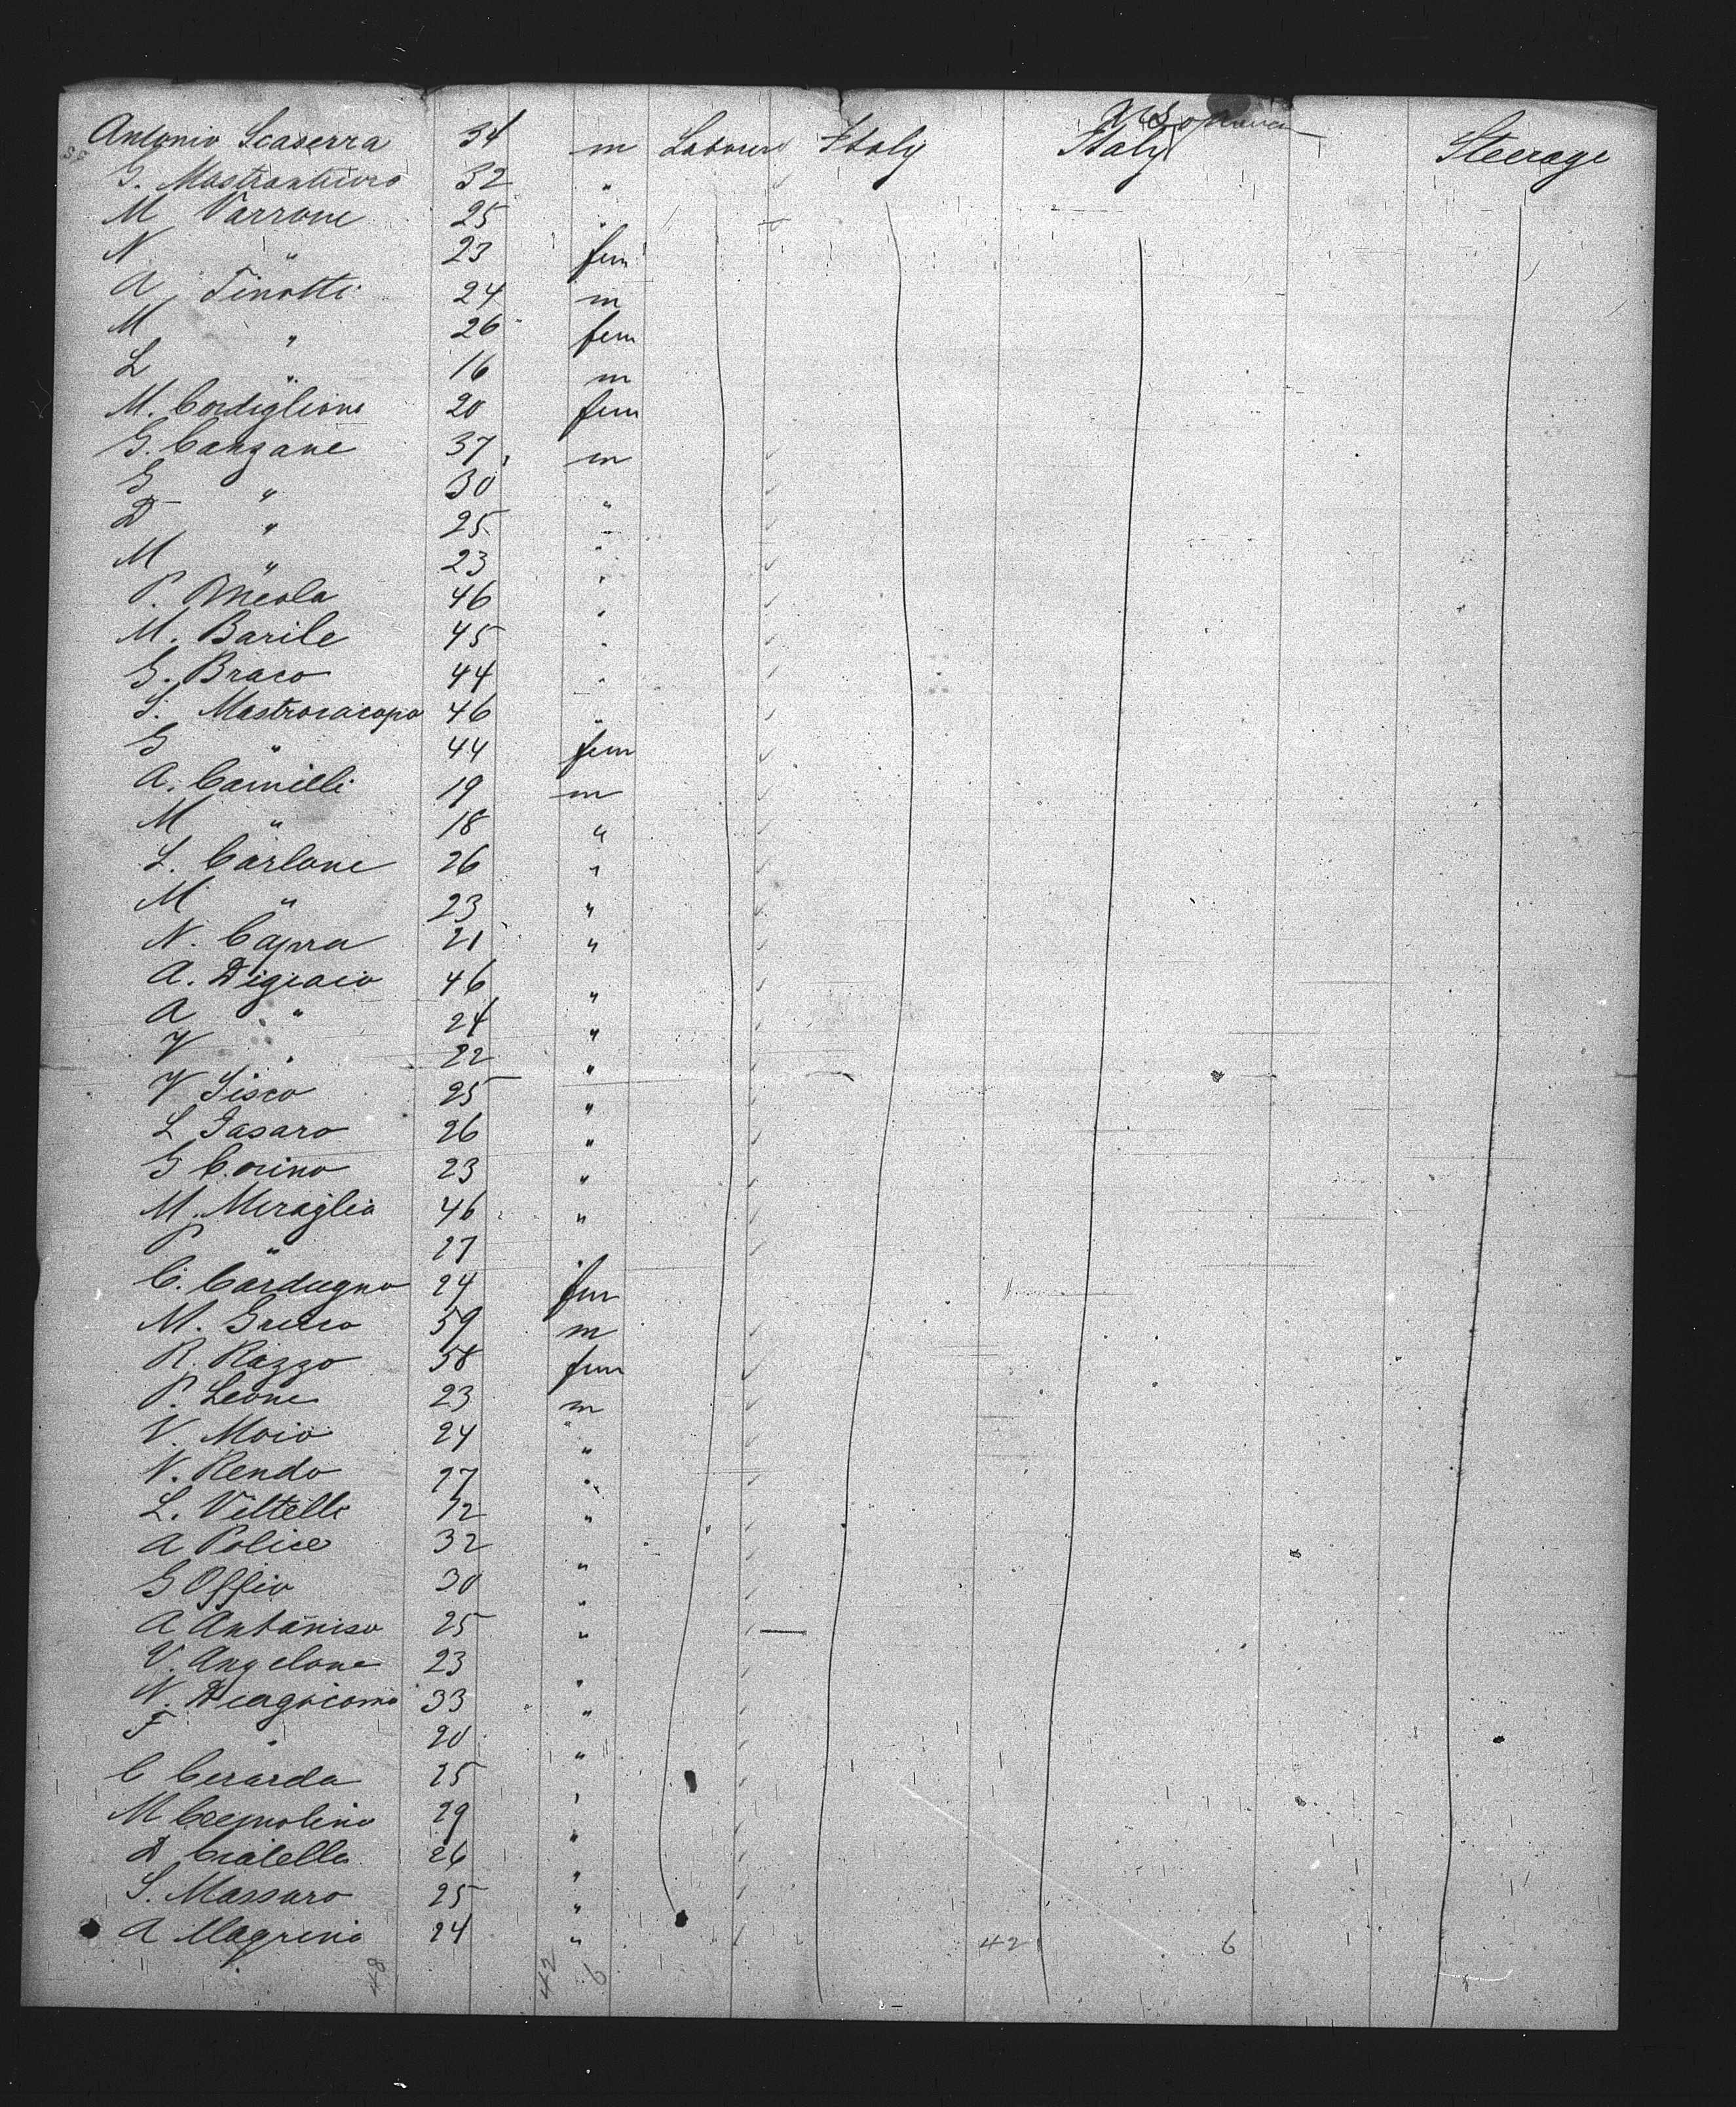 Antonio Scaserra 34 m Labourer Italy Italy Steerage
G. Mastrantuiro 32 "
M Varrone 25 "
N " 23 fem
A Tinotti 24 m
M " 26 fem
L " 16 m
M. Cordiglione 20 fem
G. Canzane 37 m
G " 30 "
D " 25 "
M " 23 "
P. Meola 46 "
M. Barile 45 "
G. Braco 44 "
S. Mastroiacopo 46 "
G " 44 fem
A. Camilli 19 m
M " 18 "
L. Carlone 26 "
M " 23 "
N. Capra 21 "
A. Digiacio 46 "
A " 24 "
V " 22 "
V Sisco 25 "
L Fasaro 26 "
G Corino 23 "
M. Meraglia 46 "
P " 27 "
C. Cardugno 24 fem
M. Greco 59 m
R. Razzo 58 fem
P. Leone 23 m
V. Moio 24 "
N. Rendo 27 "
L. Viltelli 12 "
A Police 32 "
G Offio 30 "
A Antoniso 25 "
V. Angelone 23 "
N. Diagiacomo 33 "
F " 20 "
C Cerarda 25 "
M Cremolino 29 "
D Cratella 26 "
S. Massaro 25 "
A Magrino 24 " 42 6
48 42 6